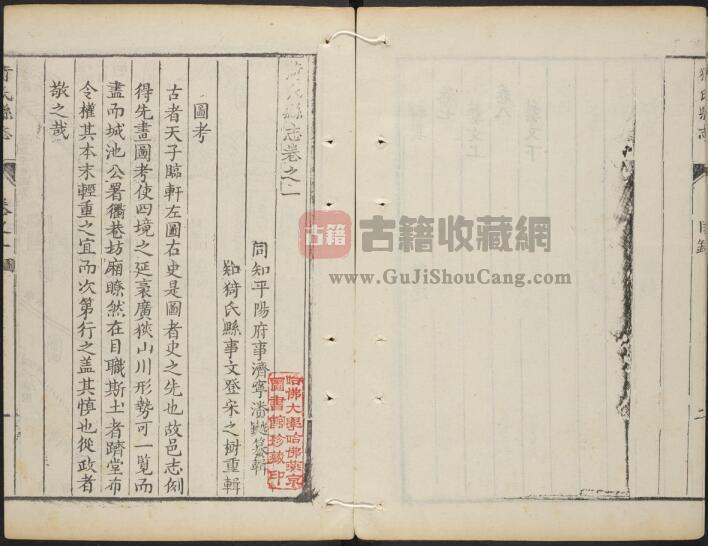 猗氏縣志
目錄
猗氏縣志卷之一
同知平陽府事濟寧潘鉞纂輯
知猗氏縣事文登宋之樹重輯
圖考
古者天子臨軒左圖右史是圖者史之先也故邑志例
得先畫圖考使四境之延袤廣狹山川形勢可一覽而
盡而城池公署衢巷坊廂瞭然在目職斯土者躋堂布
令權其本末輕重之宜而次第行之蓋其慎也從政者
敬之哉
猗氏縣志
卷之一圖
一
哈佛大學哈佛燕京
圖書館珍藏印
古籍
古籍收藏網
www.GuJiShouCang.com